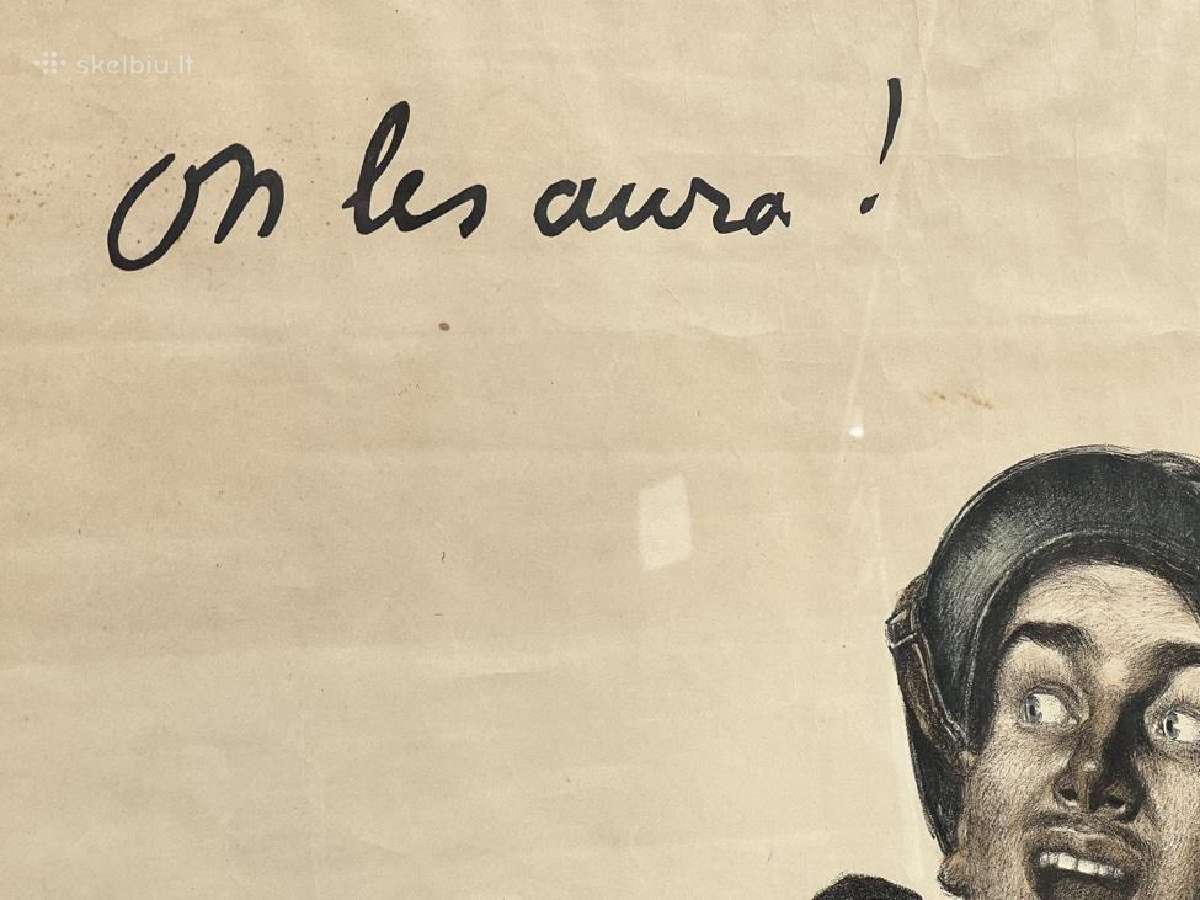 skelbiu.lt
On les aura !